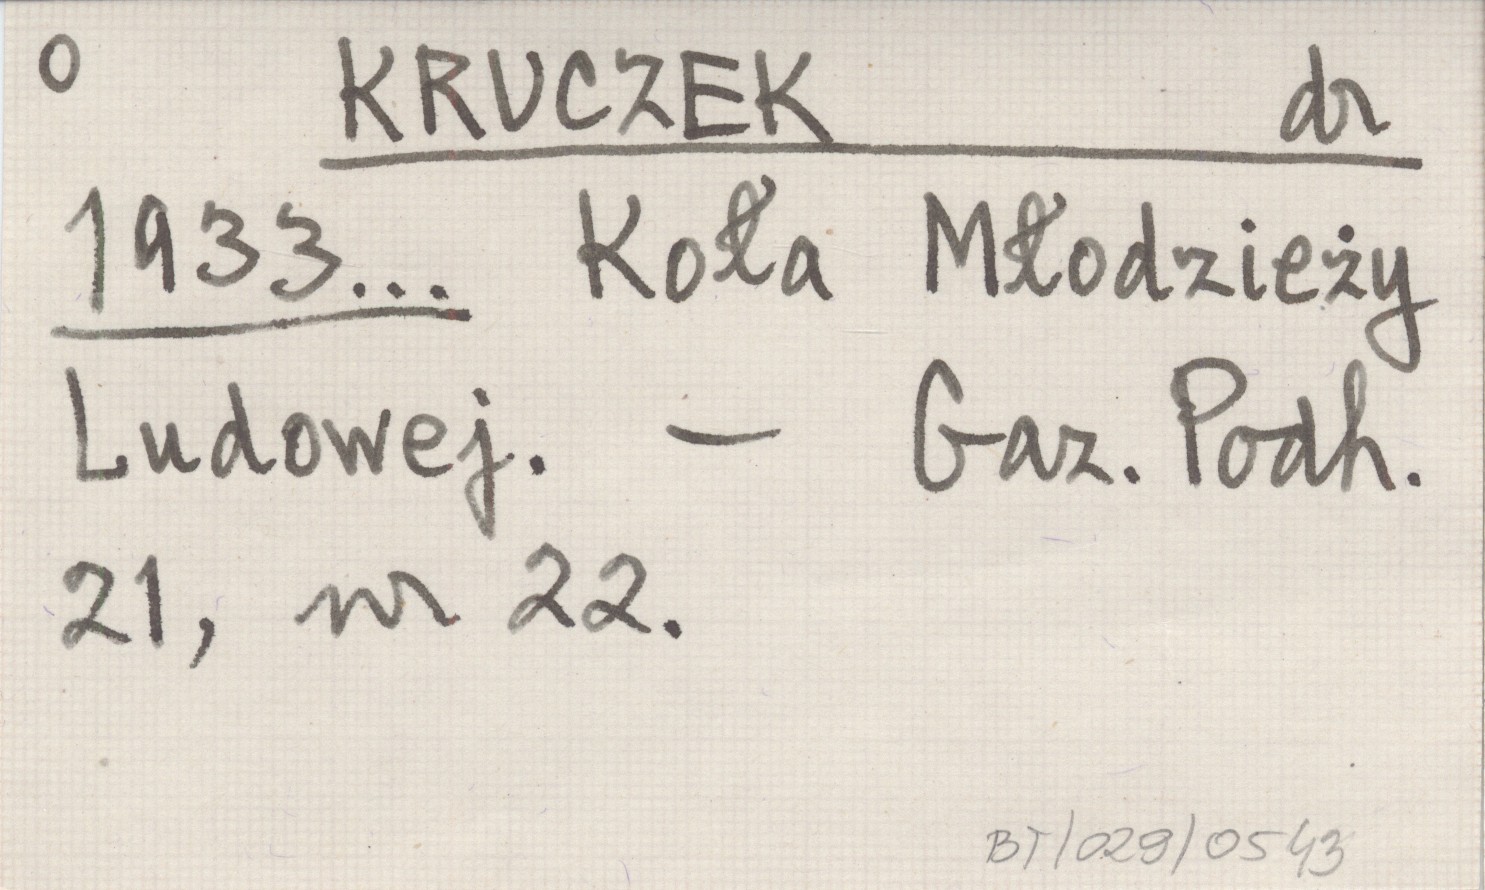 O KRUCZEK dr
1933... Koła Młodzieży
Ludowej. — Gaz. Podh.
21, nr 22.
BT/029/0543